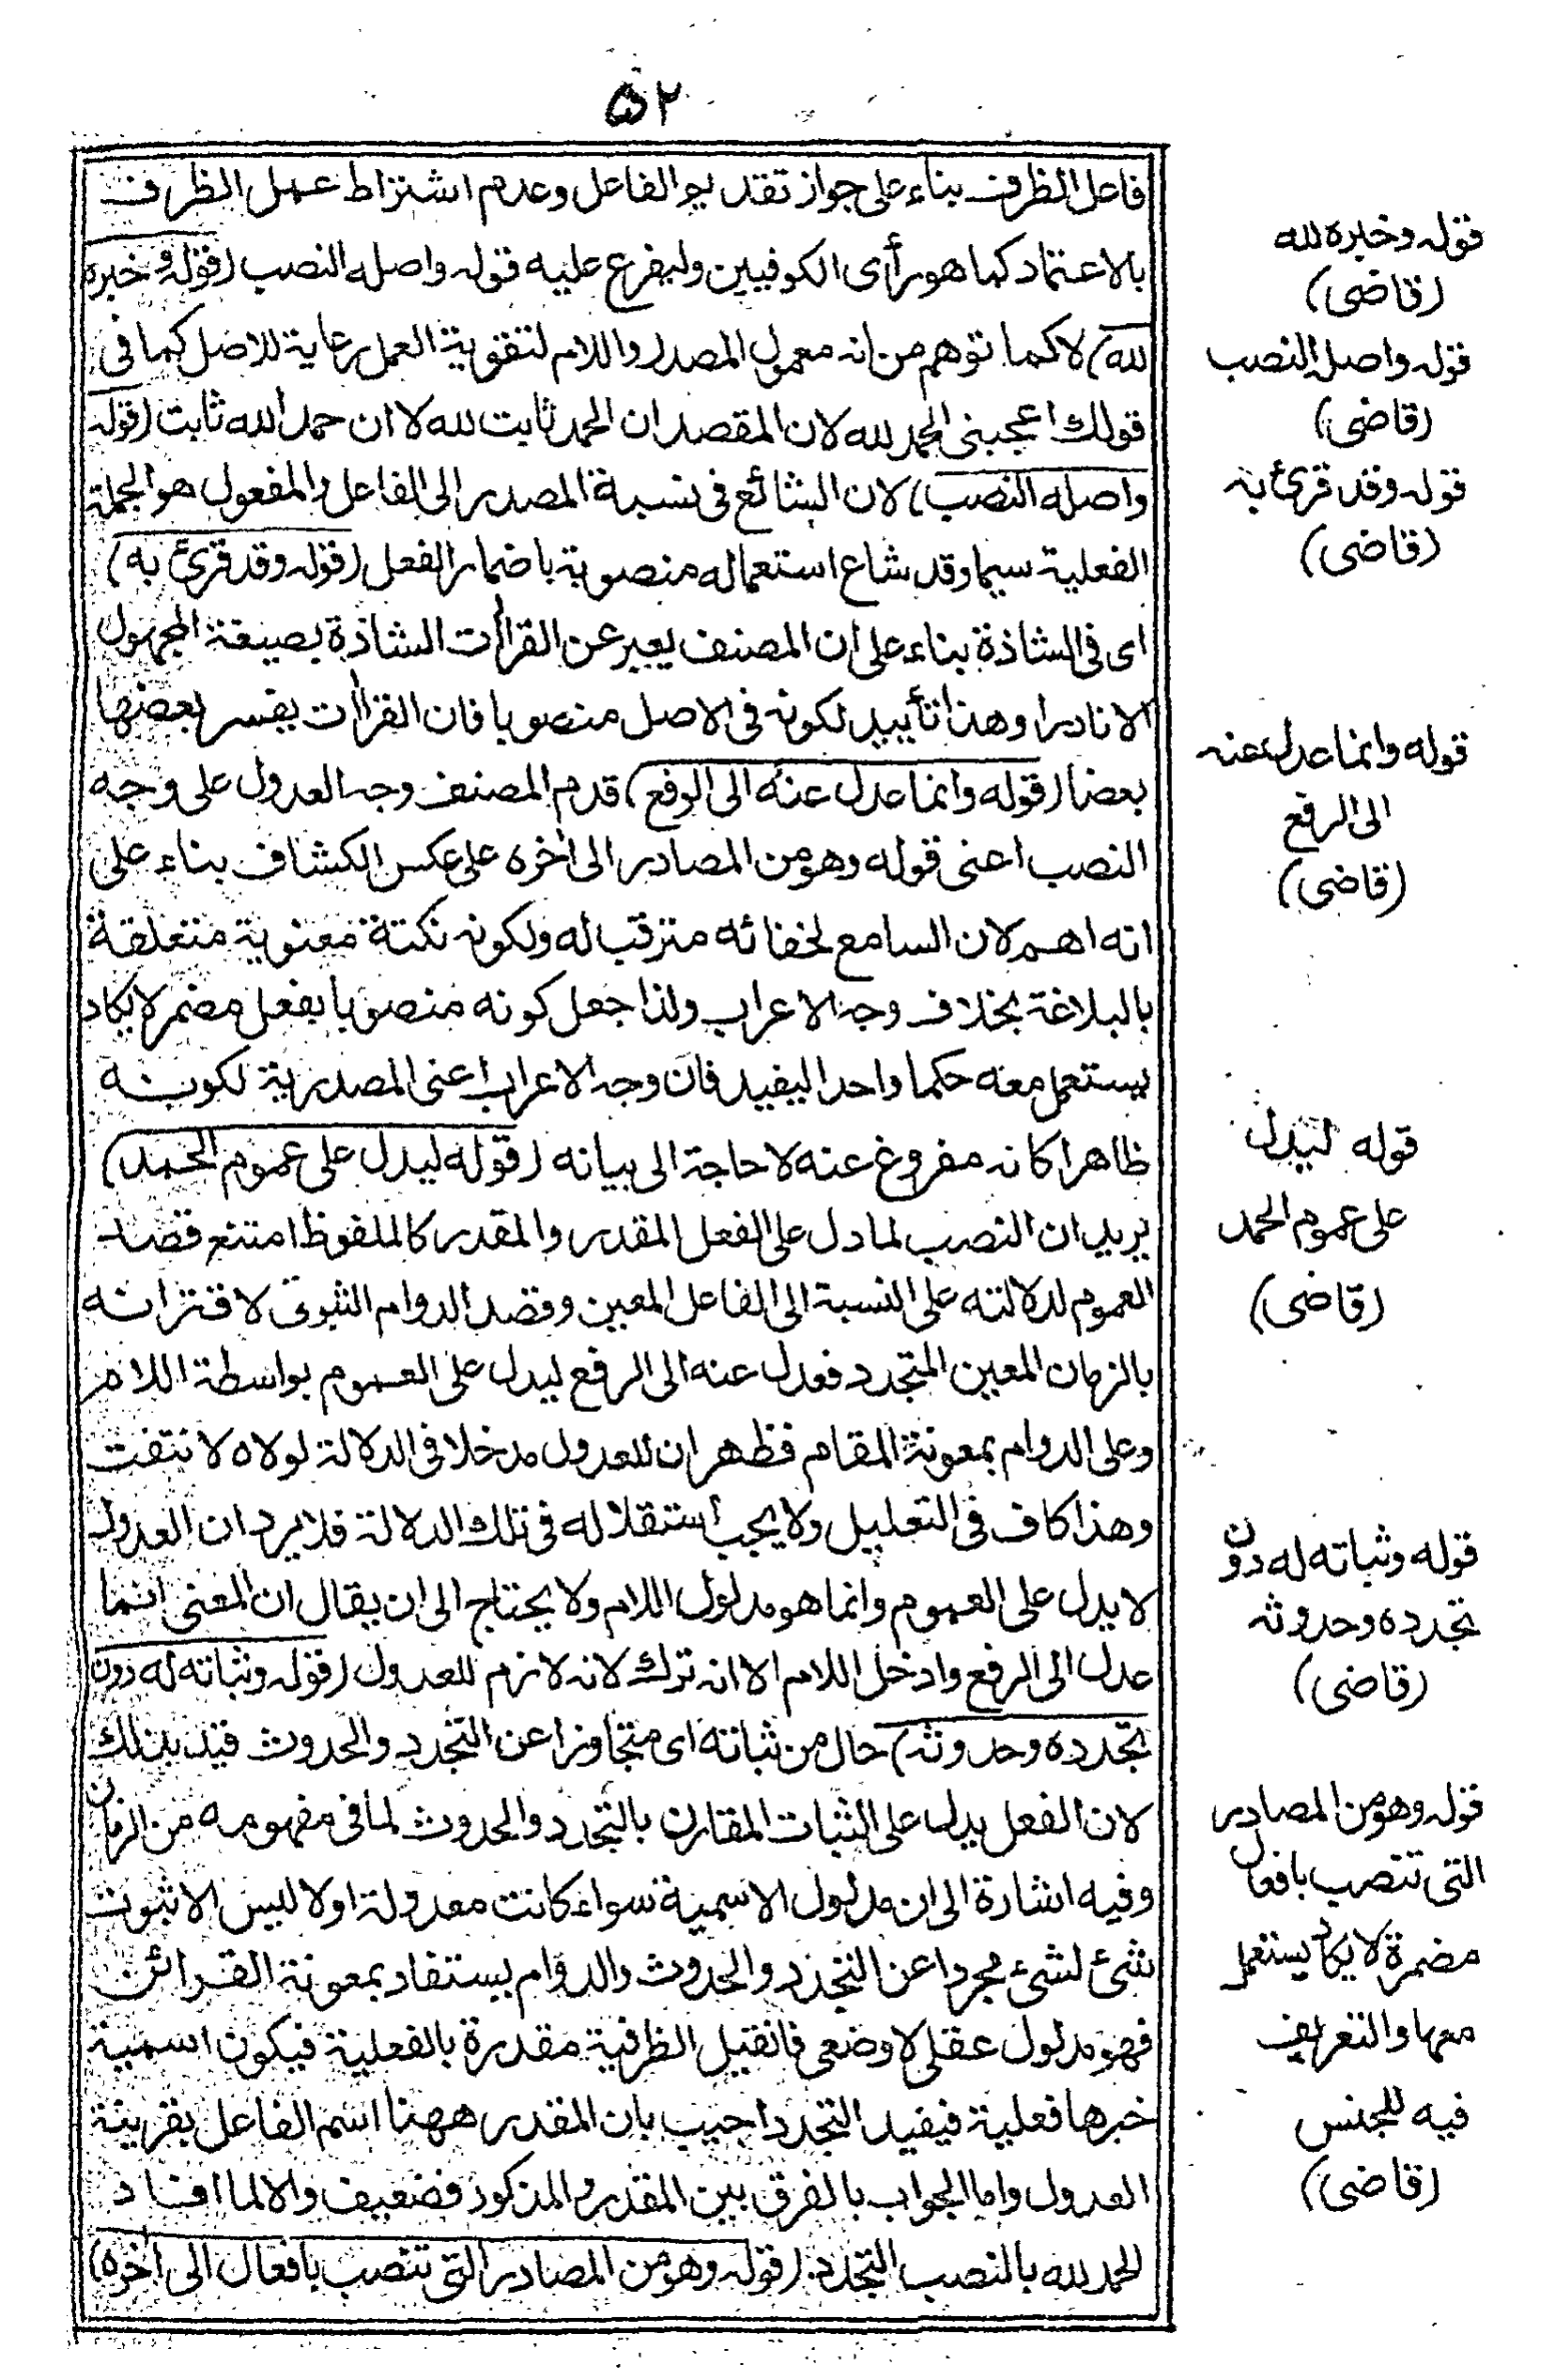 ٥٢
فاعل الظرف بناء على جواز تقديم الفاعل وعدم اشتراط عمل الظرف
بالاعتماد كما هو رأى الكوفيين وليفرع عليه قوله واصله النصب (قوله وخبره
لله) لا كما توهم من انه معمول المصدر واللام لتقوية العمل رعاية للاصل كما فى
قولك اعجبنى الحمد لله لان المقصد ان الحمد ثابت لله لا ان حمد الله ثابت (قوله
واصله النصب) لان الشائع فى نسبة المصدر الى الفاعل والمفعول هو الجملة
الفعلية سيما وقد شاع استعماله منصوبة باضمار الفعل (قوله وقد قرئ به)
اى فى الشاذة بناء على ان المصنف يعبر عن القراأت الشاذة بصيغة المجهول
الا نادرا وهذا تأييد لكونه فى الاصل منصوبا فان القراأت يفسر بعضها
بعضا (قوله وانما عدل عنه الى الرفع) قدم المصنف وجه العدول على وجه
النصب اعنى قوله وهو من المصادر الى اخره على عكس الكشاف بناء على
انه اهم لان السامع لخفائه مترقب له ولكونه نكتة معنوية متعلقة
بالبلاغة بخلاف وجه الاعراب ولذا جعل كونه منصوبا بفعل مضمر لا يكاد
يستعمل معه حكما واحدا ليفيد فان وجه الاعراب اعنى المصدرية لكونه
ظاهرا كانه مفروغ عنه لا حاجة الى بيانه (قوله ليدل على عموم الحمد)
يريد ان النصب لما دل على الفعل المقدر والمقدر كالملفوظ امتنع قصد
العموم لدلالته على النسبة الى الفاعل المعين وقصد الدوام الثبوتى لاقترانه
بالزمان المعين المتجدد فعدل عنه الى الرفع ليدل على العموم بواسطة اللام
وعلى الدوام بمعونة المقام فظهر ان للعدول مدخلا فى الدلالة لولاه لانتفت
وهذا كاف فى التعليل ولا يجب استقلاله فى تلك الدلالة فلا يرد ان العدول
لا يدل على العموم وانما هو مدلول اللام ولا يحتاج الى ان يقال ان المعنى انما
عدل الى الرفع وادخل اللام الا انه ترك لانه لازم للعدول (قوله وثباته له دون
تجدده وحدوثه) حال من ثباته اى متجاوزا عن التجدد والحدوث قيد بذلك
لان الفعل يدل على الثبات المقارن بالتجدد والحدوث لما فى مفهومه من الزمان
وفيه اشارة الى ان مدلول الاسمية سواء كانت معدولة اولا ليس الا ثبوت
شئ لشئ مجردا عن التجدد والحدوث والدوام يستفاد بمعونة القرائن
فهو مدلول عقلى لا وضعى فانقيل الظرفية مقدرة بالفعلية فيكون اسمية
خبرها فعلية فيفيد التجدد اجيب بان المقدر ههنا اسم الفاعل بقرينة
العدول واما الجواب بالفرق بين المقدر والمذكور فضعيف والا لما افاد
الحمد لله بالنصب التجدد (قوله وهو من المصادر التى تنصب بافعال الى اخره)
قوله وخبره لله
(قاضى)
قوله واصله النصب
(قاضى)
قوله وقد قرئ به
(قاضى)
قوله وانما عدل عنه
الى الرفع
(قاضى)
قوله ليدل
على عموم الحمد
(قاضى)
قوله وثباته له دون
تجدده وحدوثه
(قاضى)
قوله وهو من المصادر
التى تنصب بافعال
مضمرة لا يكاد يستعمل
معها والتعريف
فيه للجنس
(قاضى)